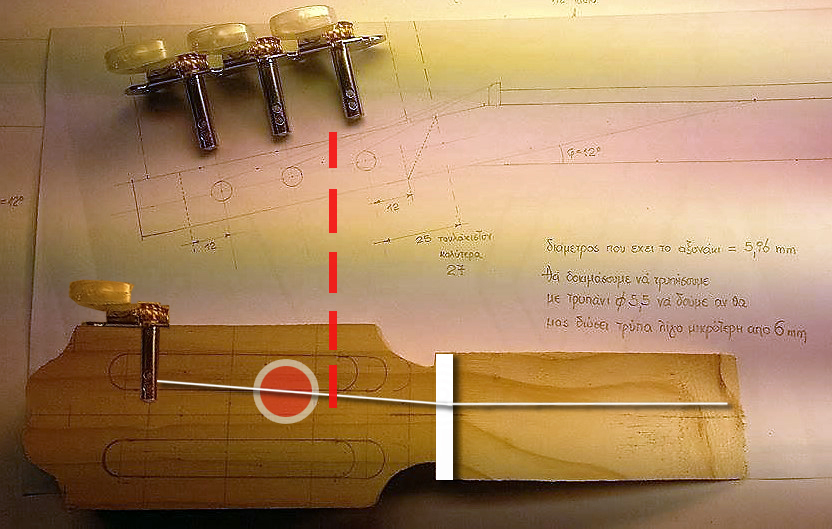 φ=12°
=12°
12
12
25 τουλάχιστον
καλύτερα
27
διάμετρος που έχει το αξονάκι = 5,96 mm
θα δοκιμάσουμε να τρυπήσουμε
με τρυπάνι φ 5,5 να δούμε αν θα
μας δώσει τρύπα λίγο μικρότερη από 6 mm